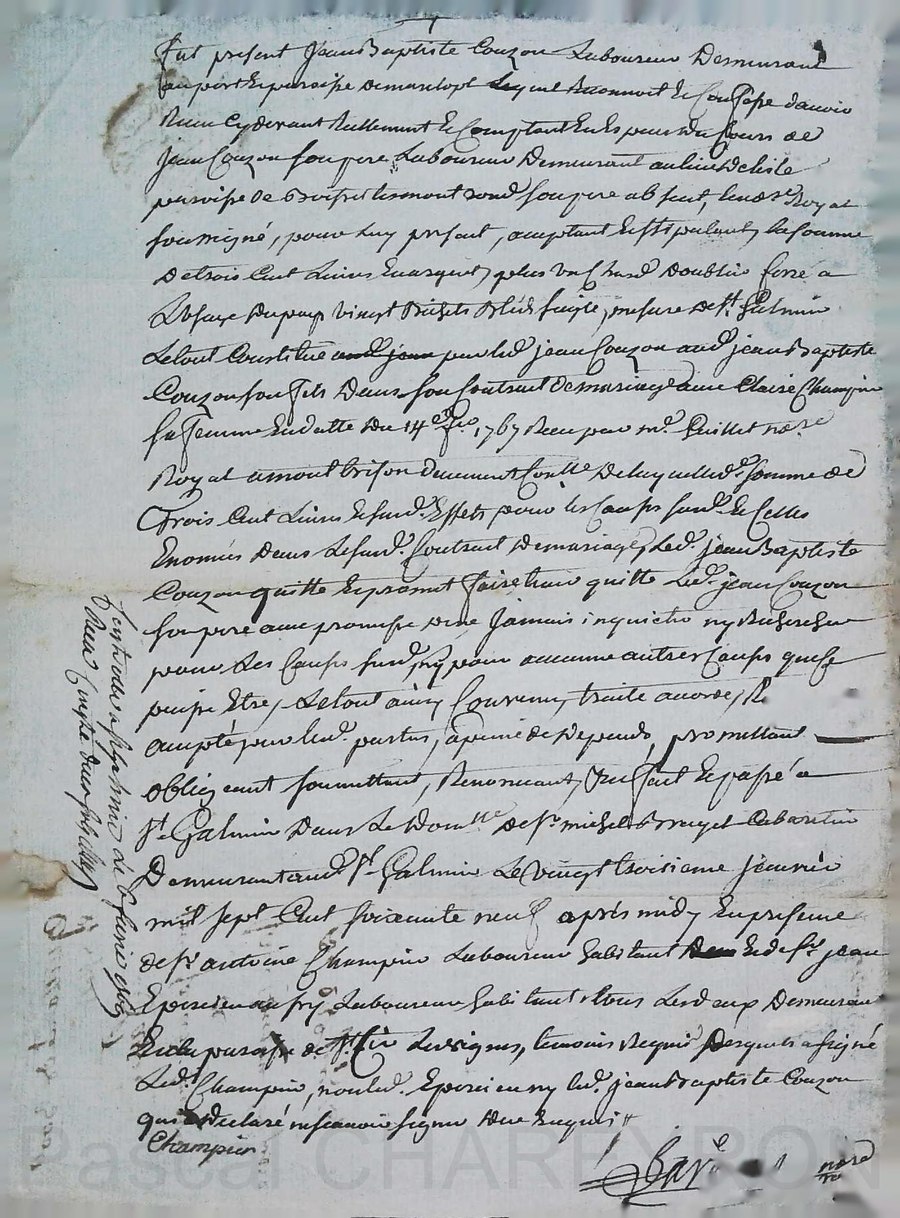 Fut present Jean Baptiste Couzon Laboureur Demeurant
au port & paroisse de marclopt Lequel Reconnoit & Confesse d'avoir
Receu Cy devant Reellement & Comptant En espèces du Cours de
Jean Couzon son pere Laboureur Demeurant au lieu Delisle
paroisse de Boisset lesmontrond son pere absent, le no.re Royal
soussigné, pour luy present, acceptant & stipulant, la somme
De trois Cent Livres En argent, plus un Char Doublier ferré a
L'usage Du pays vingt Bichets Bled seigle, mesure de St. Galmier
Le tout Constitué par led. jean Couzon aud. jean Baptiste
Couzon son fils Dans son Contract de mariage avec Claire Champier
sa femme En datte Du 14e 1767 Receu par me. Guillet no.re
Royal a montbrison duement Conllé De laquelle d. somme de
Trois Cent Livres & susd. Effets pour les Causes susd. & Celles
Enoncées Dans Le susd. Contract De mariage, Led. jean Baptiste
Couzon quitte & promet faire tenir quitte Led. jean Couzon
son pere avec promesse de ne Jamais inquieter ny Rechercher
pour Les Causes susd. ny pour aucune autres Causes que Ce
puisse Etre, Le tout ainsy Convenu, traité accordé, &
accepté par lesd. parties, a peine de Depends, promettant
obligeant soumettant, Renoncant, fait & passé a
St. Galmier Dans Le Domlle De Sr. michel Bruyet Cabaretier
Demeurant aud. St. Galmier Le vingt troisieme janvier
mil sept Cent soixante neuf après midy En presence
de Sr. antoine Champier Laboureur habitant & de Sr. jean
Epercieu aussy Laboureur habitant tous Lesdeux Demeurant
En la paroisse de St. Cir Les vignes, temoins Requis Desquels a signé
Led. Champier, non led. Epercieu ny led. jean Baptiste Couzon
qui a Declaré ne scavoir signer De ce Requis
Champier
no.re
Ro
Controllé a St. galmier le 1769
Receu
Pascal CHAREYRON